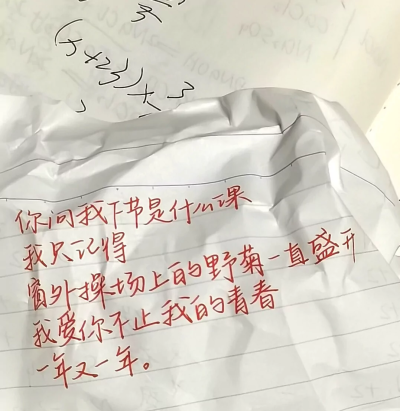 (x+23)×3
你问我下节是什么课
我只记得
窗外操场上的野菊一直盛开
我爱你不止我的青春
一年又一年。